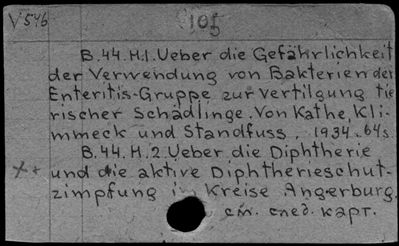 V 546
105
B.44.H.1. Ueber die Gefährlichkeit
der Verwendung von Bakterien der
Enteritis-Gruppe zur Vertilgung tie
rischer Schädlinge. Von Kathe, Kli-
mmeck und Standfuss. 1934. 64s
B.44.H.2. Ueber die Diphtherie
und die aktive Diphtherieschut-
zimpfung im Kreise Angerburg.
см. след. карт.